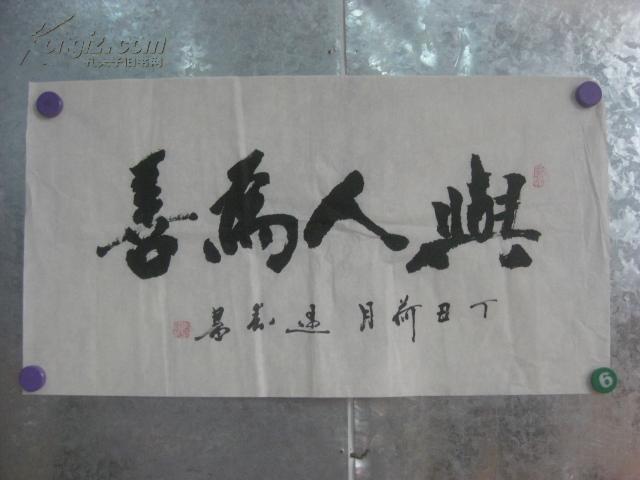 與人為善
丁丑荷月
Kongfz.com
孔夫子旧书网
6